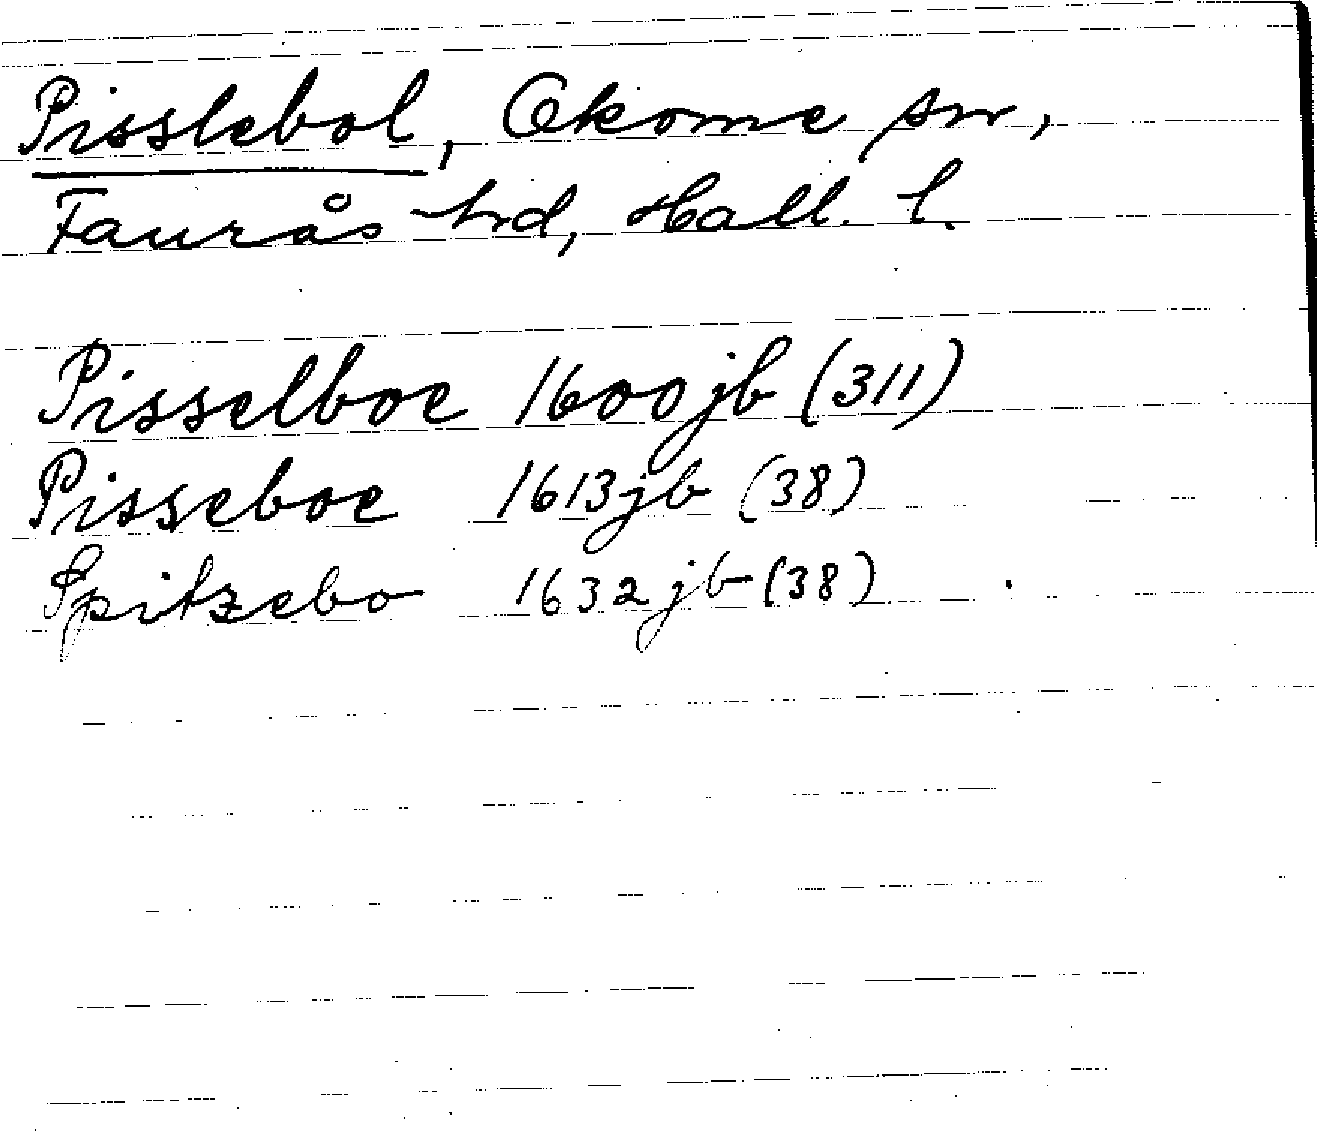 Pisslebol, Okome sn,
Faurås hd, Hall. l.
Pisselboe 1600 jb (311)
Pisseboe 1613 jb (38)
Spitzebo 1632 jb (38)